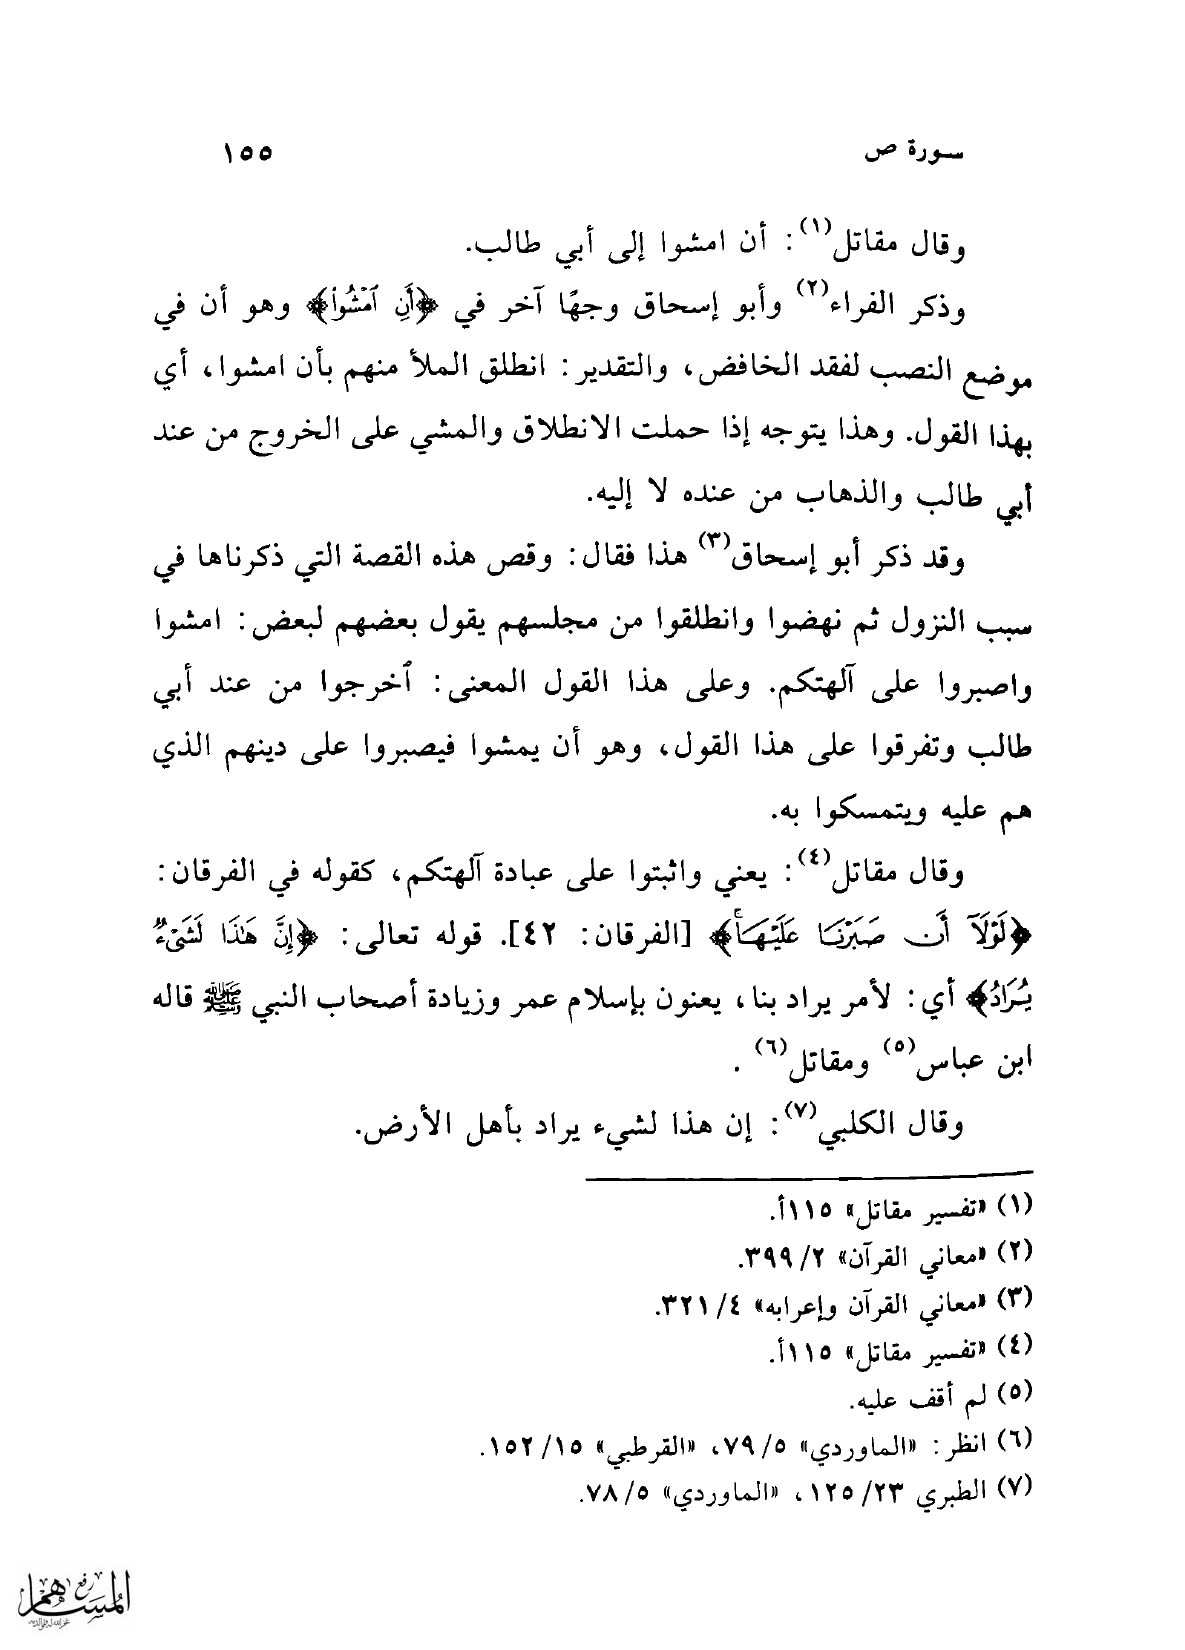 سورة ص
١٥٥
وقال مقاتل(١): أن امشوا إلى أبي طالب.
وذكر الفراء(٢) وأبو إسحاق وجهًا آخر في ﴿أَنِ ٱمْشُوا۟﴾ وهو أن في
موضع النصب لفقد الخافض، والتقدير: انطلق الملأ منهم بأن امشوا، أي
بهذا القول. وهذا يتوجه إذا حملت الانطلاق والمشي على الخروج من عند
أبي طالب والذهاب من عنده لا إليه.
وقد ذكر أبو إسحاق(٣) هذا فقال: وقص هذه القصة التي ذكرناها في
سبب النزول ثم نهضوا وانطلقوا من مجلسهم يقول بعضهم لبعض: امشوا
واصبروا على آلهتكم. وعلى هذا القول المعنى: ٱخرجوا من عند أبي
طالب وتفرقوا على هذا القول، وهو أن يمشوا فيصبروا على دينهم الذي
هم عليه ويتمسكوا به.
وقال مقاتل(٤): يعني واثبتوا على عبادة آلهتكم، كقوله في الفرقان:
﴿لَوْلَآ أَن صَبَرْنَا عَلَيْهَاۚ﴾ [الفرقان: ٤٢]. قوله تعالى: ﴿إِنَّ هَٰذَا لَشَىْءٌ
يُرَادُ﴾ أي: لأمر يراد بنا، يعنون بإسلام عمر وزيادة أصحاب النبي ﷺ قاله
ابن عباس(٥) ومقاتل(٦) .
وقال الكلبي(٧): إن هذا لشيء يراد بأهل الأرض.
(١) «تفسير مقاتل» ١١٥أ.
(٢) «معاني القرآن» ٢/ ٣٩٩.
(٣) «معاني القرآن وإعرابه» ٤/ ٣٢١.
(٤) «تفسير مقاتل» ١١٥أ.
(٥) لم أقف عليه.
(٦) انظر: «الماوردي» ٥/ ٧٩، «القرطبي» ١٥/ ١٥٢.
(٧) الطبري ٢٣/ ١٢٥، «الماوردي» ٥/ ٧٨.